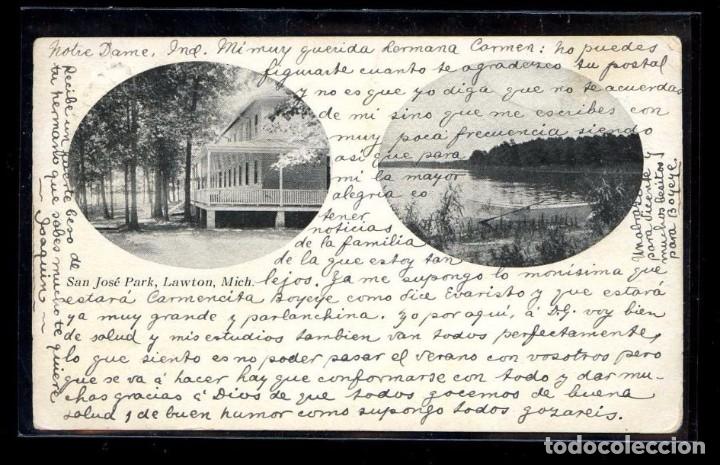 Notre Dame, Ind. Mi muy querida hermana Carmen: no puedes
figurarte cuanto te agradezco tu postal
y no es que yo diga que no te acuerdas
de mi sino que me escribes con
muy poca frecuencia siendo
asi que para
mi la mayor
alegria es
tener
noticias
de la familia
de la que estoy tan
lejos. Ya me supongo lo monisima que
estará Carmencita Boyeye como dice Evaristo y que estará
ya muy grande y parlanchina. Yo por aqui, á D.G. voy bien
de salud y mis estudios tambien van todos perfectamente,
lo que siento es no poder pasar el verano con vosotros pero
que se va á hacer hay que conformarse con todo y dar mu-
chas gracias á Dios de que todos gocemos de buena
salud y de buen humor como supongo todos gozareis.
Recibe un fuerte beso de
tu hermano que sabes mucho te quiere
~ Joaquin ~
Un abrazo
para Vicente y
muchos besitos
para Boyeye
San José Park, Lawton, Mich.
todocoleccion.net